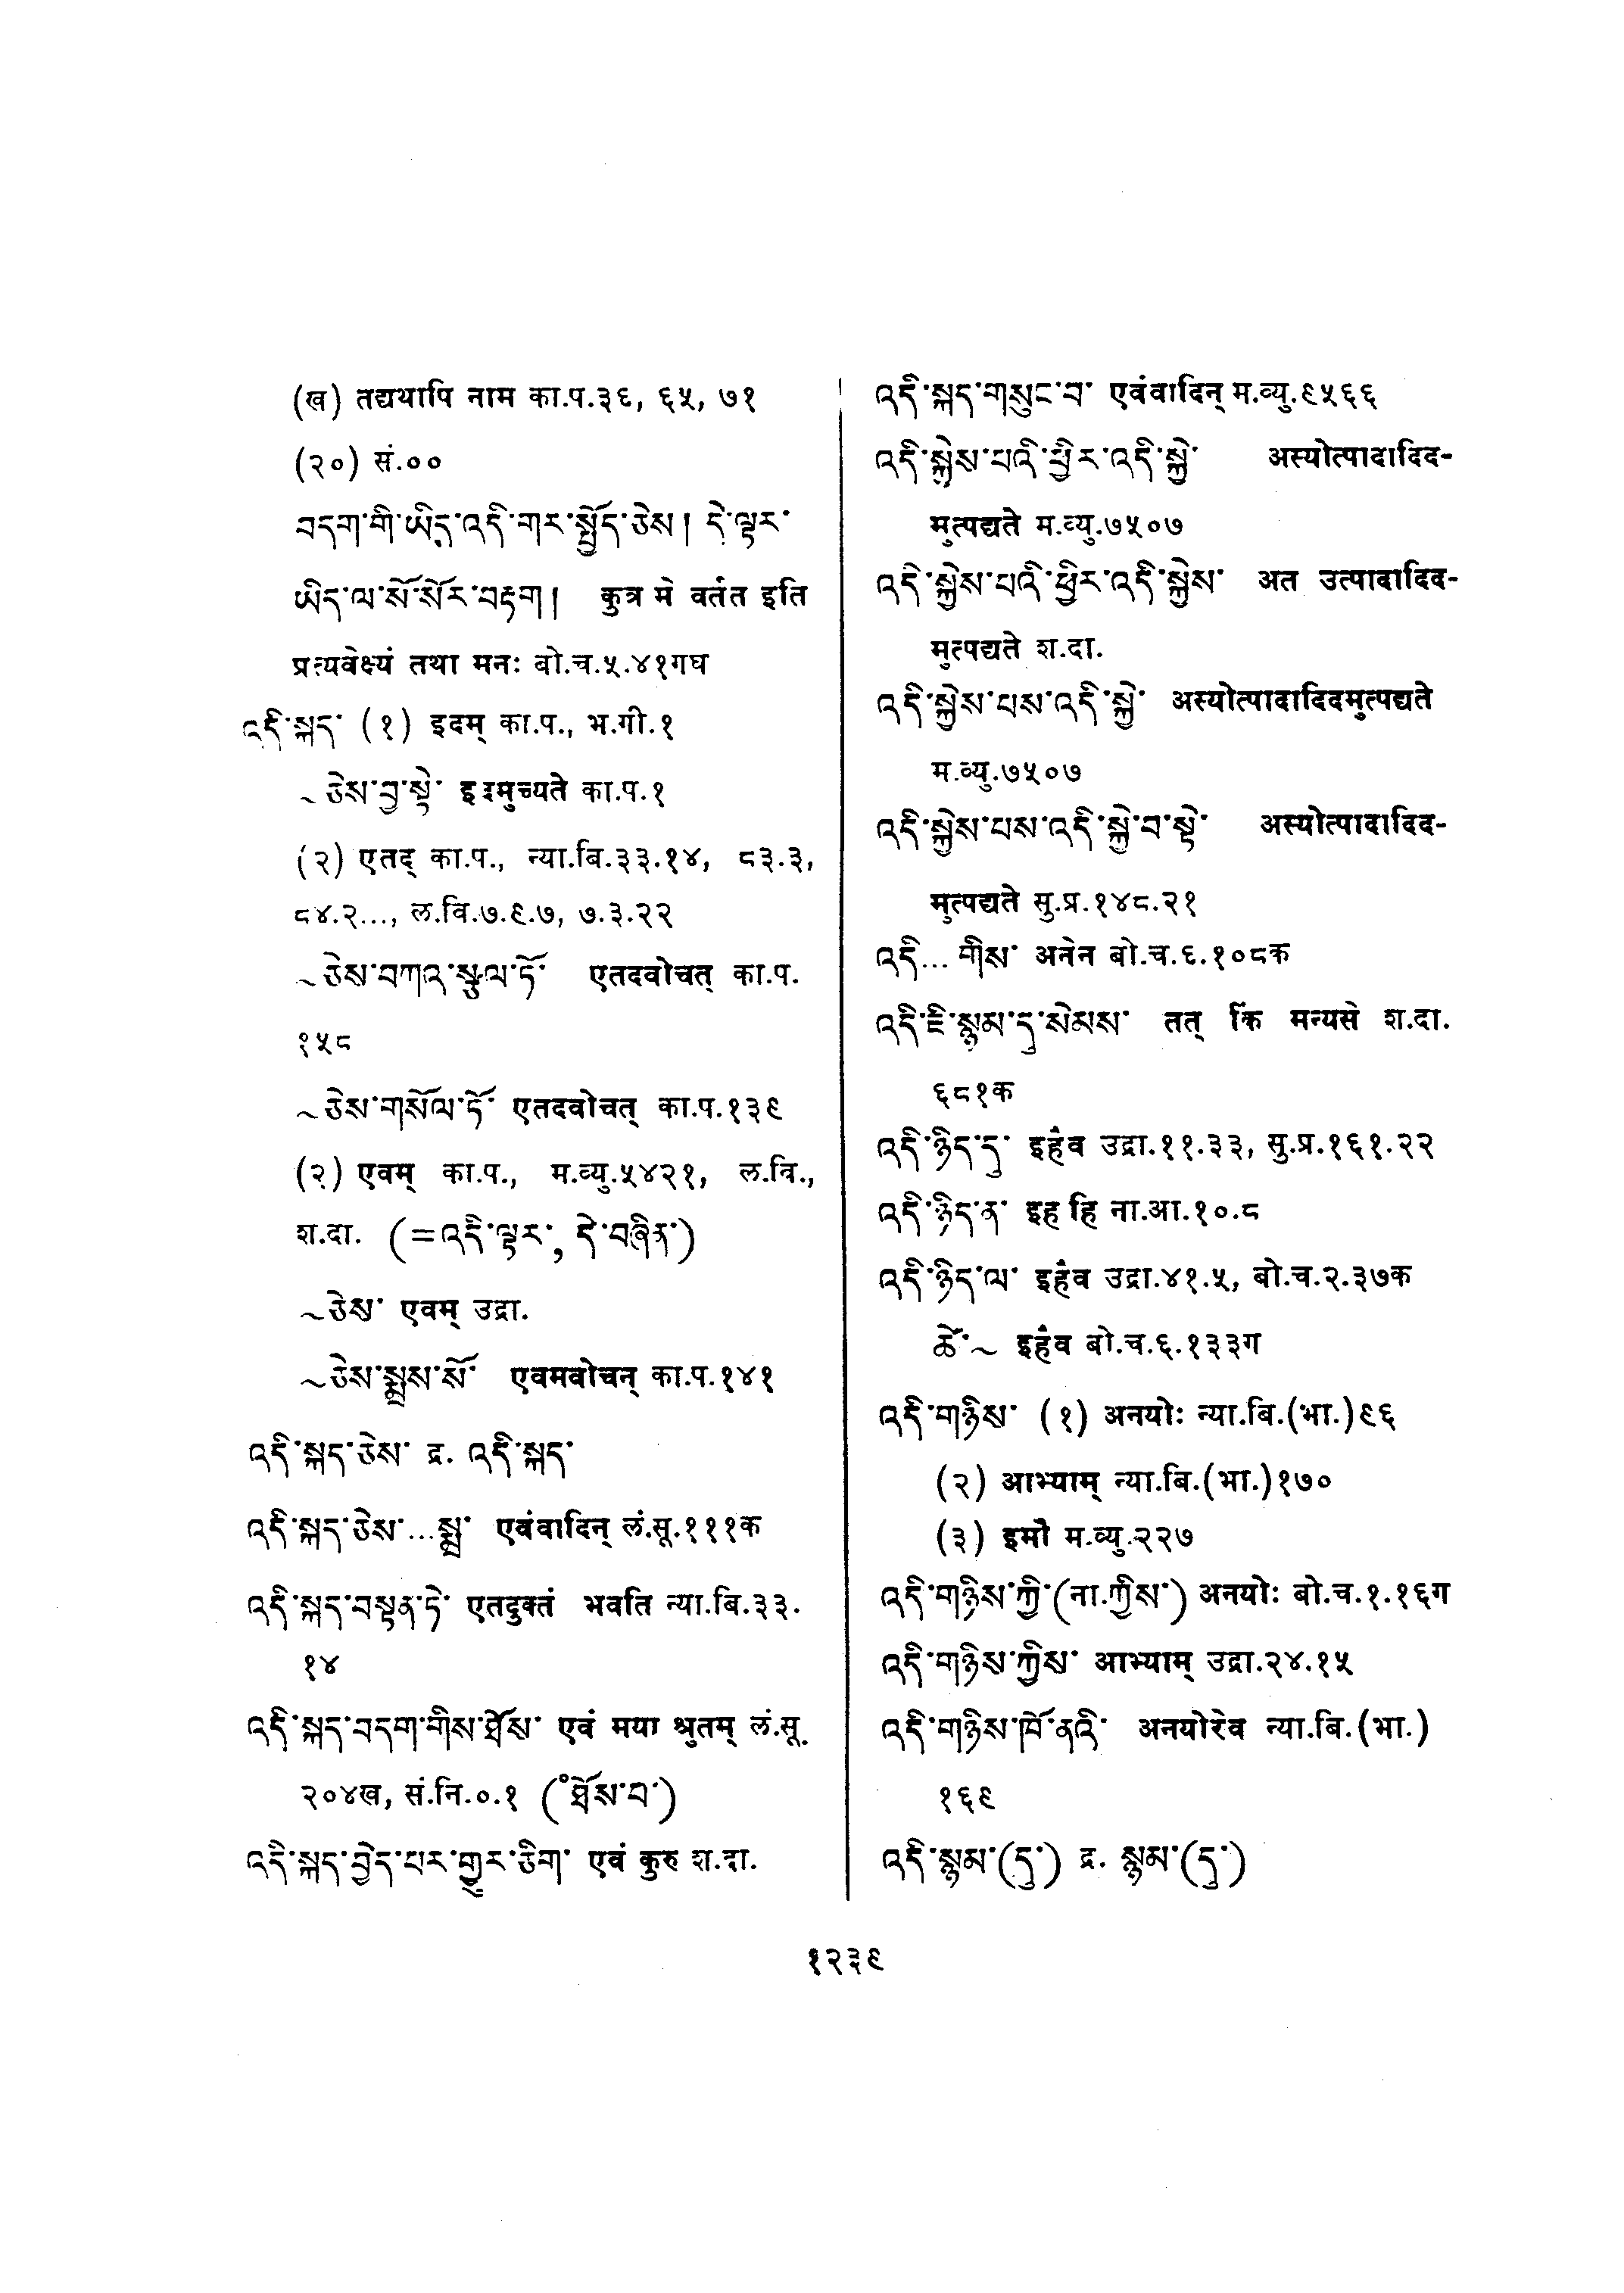 (ख) तद्यथापि नाम का.प.३९, ६५, ७१
(२०) सं.००
བདག་གི་ཡིད་འདི་གར་སྤྱོད་ཅེས། དེ་ལྟར་
ཡིད་ལ་སོ་སོར་བརྟག། कुत्र मे वर्तत इति
प्रत्यवेक्ष्यं तथा मनः बो.च.५.४१गघ
འདི་སྐད་ (१) इदम् का.प., भ.गी.१
~ཅེས་བྱ་སྟེ་ इदमुच्यते का.प.१
(२) एतद् का.प., न्या.बि.३३.१४, ८३.३,
८४.२..., ल.वि.७.९.७, ७.३.२२
~ཅེས་བཀའ་སྩལ་ཏོ་ एतदवोचत् का.प.
१५८
~ཅེས་གསོལ་ཏོ་ एतदवोचत् का.प.१३९
(२) एवम् का.प., म.व्यु.५४२१, ल.वि.,
श.दा. (=འདི་ལྟར་, དེ་བཞིན་)
~ཅེས་ एवम् उद्रा.
~ཅེས་སྨྲས་སོ་ एवमवोचन् का.प.१४१
འདི་སྐད་ཅེས་ द्र. འདི་སྐད་
འདི་སྐད་ཅེས་...སྨྲ་ एवंवादिन् लं.सू.१११क
འདི་སྐད་བསྟན་ཏེ་ एतदुक्तं भवति न्या.बि.३३.
१४
འདི་སྐད་བདག་གིས་ཐོས་ एवं मया श्रुतम् लं.सू.
२०४ख, सं.नि.०.१ (°ཐོས་པ་)
འདི་སྐད་བྱེད་པར་གྱུར་ཅིག་ एवं कुरु श.दा.
འདི་སྐད་གསུང་བ་ एवंवादिन् म.व्यु.९५६६
འདི་སྐྱེས་པའི་ཕྱིར་འདི་སྐྱེ་ अस्योत्पादादिद-
मुत्पद्यते म.व्यु.७५०७
འདི་སྐྱེས་པའི་ཕྱིར་འདི་སྐྱེས་ अत उत्पादादिद-
मुत्पद्यते श.दा.
འདི་སྐྱེས་པས་འདི་སྐྱེ་ अस्योत्पादादिदमुत्पद्यते
म.व्यु.७५०७
འདི་སྐྱེས་པས་འདི་སྐྱེ་བ་སྟེ་ अस्योत्पादादिद-
मुत्पद्यते सु.प्र.१४८.२१
འདི... གིས་ अनेन बो.च.६.१०८क
འདི་ཇི་སྙམ་དུ་སེམས་ तत् किं मन्यसे श.दा.
६८१क
འདི་ཉིད་དུ་ इहैव उद्रा.११.३३, सु.प्र.१६१.२२
འདི་ཉིད་ན་ इह हि ना.आ.१०.८
འདི་ཉིད་ལ་ इहैव उद्रा.४१.५, बो.च.२.३७क
ཚེ་~ इहैव बो.च.६.१३३ग
འདི་གཉིས་ (१) अनयोः न्या.बि.(भा.)९६
(२) आभ्याम् न्या.बि.(भा.)१७०
(३) इमौ म.व्यु.२२७
འདི་གཉིས་ཀྱི་(ना.ཀྱིས་) अनयोः बो.च.१.१६ग
འདི་གཉིས་ཀྱིས་ आभ्याम् उद्रा.२४.१५
འདི་གཉིས་ཁོ་ནའི་ अनयोरेव न्या.बि.(भा.)
१६९
འདི་སྙམ་(དུ་) द्र. སྙམ་(དུ་)
१२३९